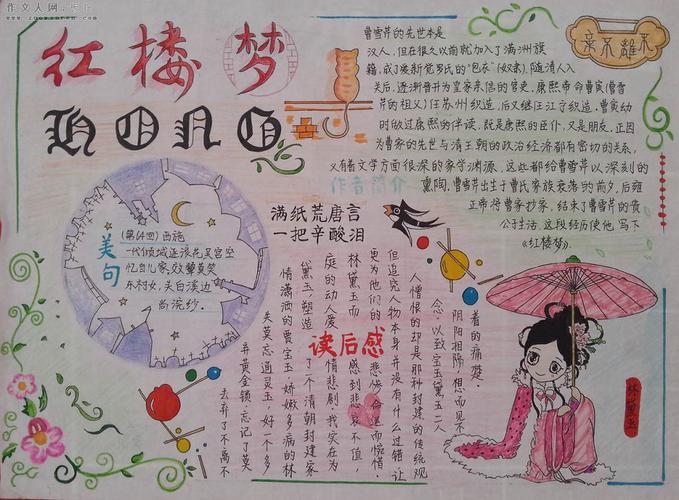 作文人网
红楼梦
HONG
棄不離不
曹雪芹的先世本是
汉人，但在很久以前就加入了满洲旗
籍，成了爱新觉罗氏的“包衣”(奴隶)，随清人入
关后，逐渐晋升为皇家亲信的官吏，康熙帝命曹寅(曹雪
芹的祖父)任苏州织造，后又继任江宁织造，曹寅幼
时做过康熙的伴读，既是康熙的臣仆，又是朋友，正因
为曹家的先世与清王朝的政治经济都有密切的关系，
又有着文学方面很深的家学渊源，这些都给曹雪芹以深刻的
熏陶，曹雪芹出生于曹氏家族衰落的前夕，后雍
正帝将曹家抄家，结束了曹雪芹的贵
公子生活，这段经历使他写下
《红楼梦》。
作者简介
满纸荒唐言
一把辛酸泪
美句
(第64回)西施
一代倾城逐浪花吴宫空
忆自儿家，效颦莫笑
东村女，头白溪边
尚浣纱。
读后感
去弃了不离不
弃黄金锁，忘记了莫
失莫忘通灵玉，好一个多
情潇洒的贾宝玉娇嫩多病的林
黛玉，塑造了个清朝封建家
庭的动人爱情悲剧。我实在为
林黛玉而感到悲哀不值
更为他们的悲惨命运而惋惜。
但追究人物本身并没有什么过错让
人憎恨的却是那种封建的传统观
念，以致宝玉黛玉二人
阴阳相隔，想而见不
着的痛楚。
林黛玉